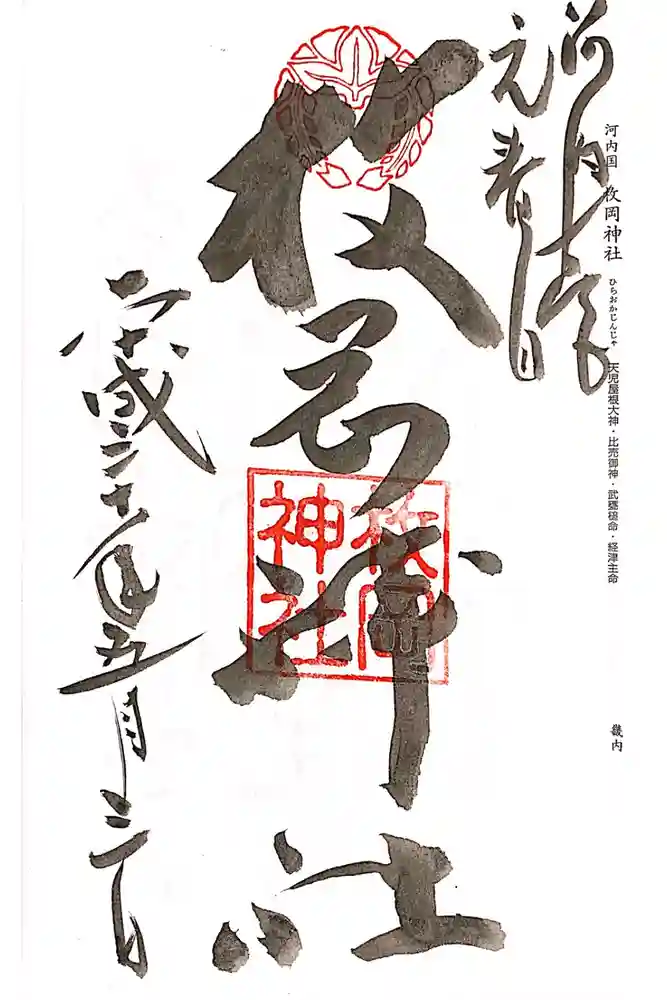 河内国 枚岡神社 ひらおかじんじゃ 天児屋根大神・比売御神・武甕槌命・経津主命
畿内
河内
元春日
枚岡神社
枚岡
神社
平成二十八年五月